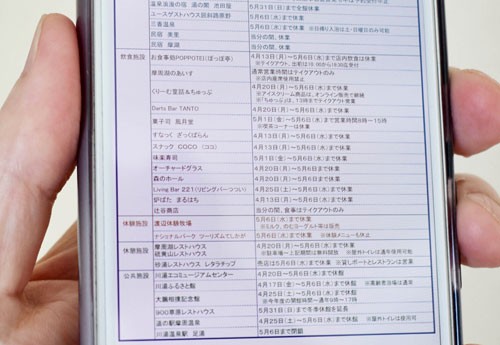 温泉民宿の宿 湯の閣 池田屋 5月31日(日)まで全館休業
ユースゲストハウス釧路湿原 5月6日(水)まで休業
三香温泉 5月6日(水)まで休業 ※日帰り入浴は土・日曜日のみ可能
民宿 美里 当分の間、休業
民宿 摩湖 当分の間、休業
飲食施設 お食事処POPPOTEI(ぽっぽ亭) 4月13日(月)~5月6日(水)まで店内飲食は休業
※テイクアウト、出前は10:00から18:30受付
摩周湖のあいす 通常営業時間はテイクアウトのみ
※店内座席使用禁止
くりーむ童話&ちゅっぷ 4月20日(月)~5月6日(水)まで休業
※アイスクリーム商品は、オンライン販売で継続
※「ちゅっぷ」は、13時までテイクアウト営業
Darts Bar TANTO 4月20日(月)~5月6日(水)まで休業
菓子司 風月堂 5月1日(金)~5月6日(水)まで営業時間8時~15時
※喫茶コーナーは休業
すなっく ざっくばらん 4月13日(月)~5月6日(水)まで休業
スナック COCO (ココ) 4月13日(月)~5月6日(水)まで休業
味楽寿司 5月1日(金)~5月6日(水)まで休業
オーチャードグラス 4月20日(月)~5月6日(水)まで休業
森のホール 4月20日(月)~5月6日(水)まで休業
Living Bar 221(リビングバーつつい) 4月25日(土)~5月6日(水)まで休業
炉ばた まるはち 4月20日(月)~5月6日(水)まで休業
辻谷商店 当分の間、食事はテイクアウトのみ
体験施設 渡辺体験牧場 5月6日(水)まで休業
※ミルク、のむヨーグルト等は販売
ナショナルパーク ツーリズムてしかが 5月6日(水)まで休業 ※体験メニューも休止
休憩施設 摩周湖レストハウス 4月20日~5月6日(水)まで休業
硫黄山レストハウス ※駐車場一上記期間は無料開放 ※屋外トイレは通年使用可能
桂湯レストハウス レタラチップ 売店は5月6日(水)まで休業 ※貸しボートとレストランは営業
公共施設 川湯エコミュージアムセンター 4月20日~5月6日(水)まで休館
川湯ふるさと館 4月17日(金)~5月6日(水)まで休館
大鵬相撲記念館 4月25日(土)~5月6日(水)まで休館
※今年度の開館時間~通年9時~17時
900草原レストハウス 5月31日(日)まで冬季休館を延長
道の駅摩周温泉 4月25日(土)~5月6日(水)まで休館 ※屋外トイレは使用可
川湯温泉駅 足湯 5月6日まで閉館